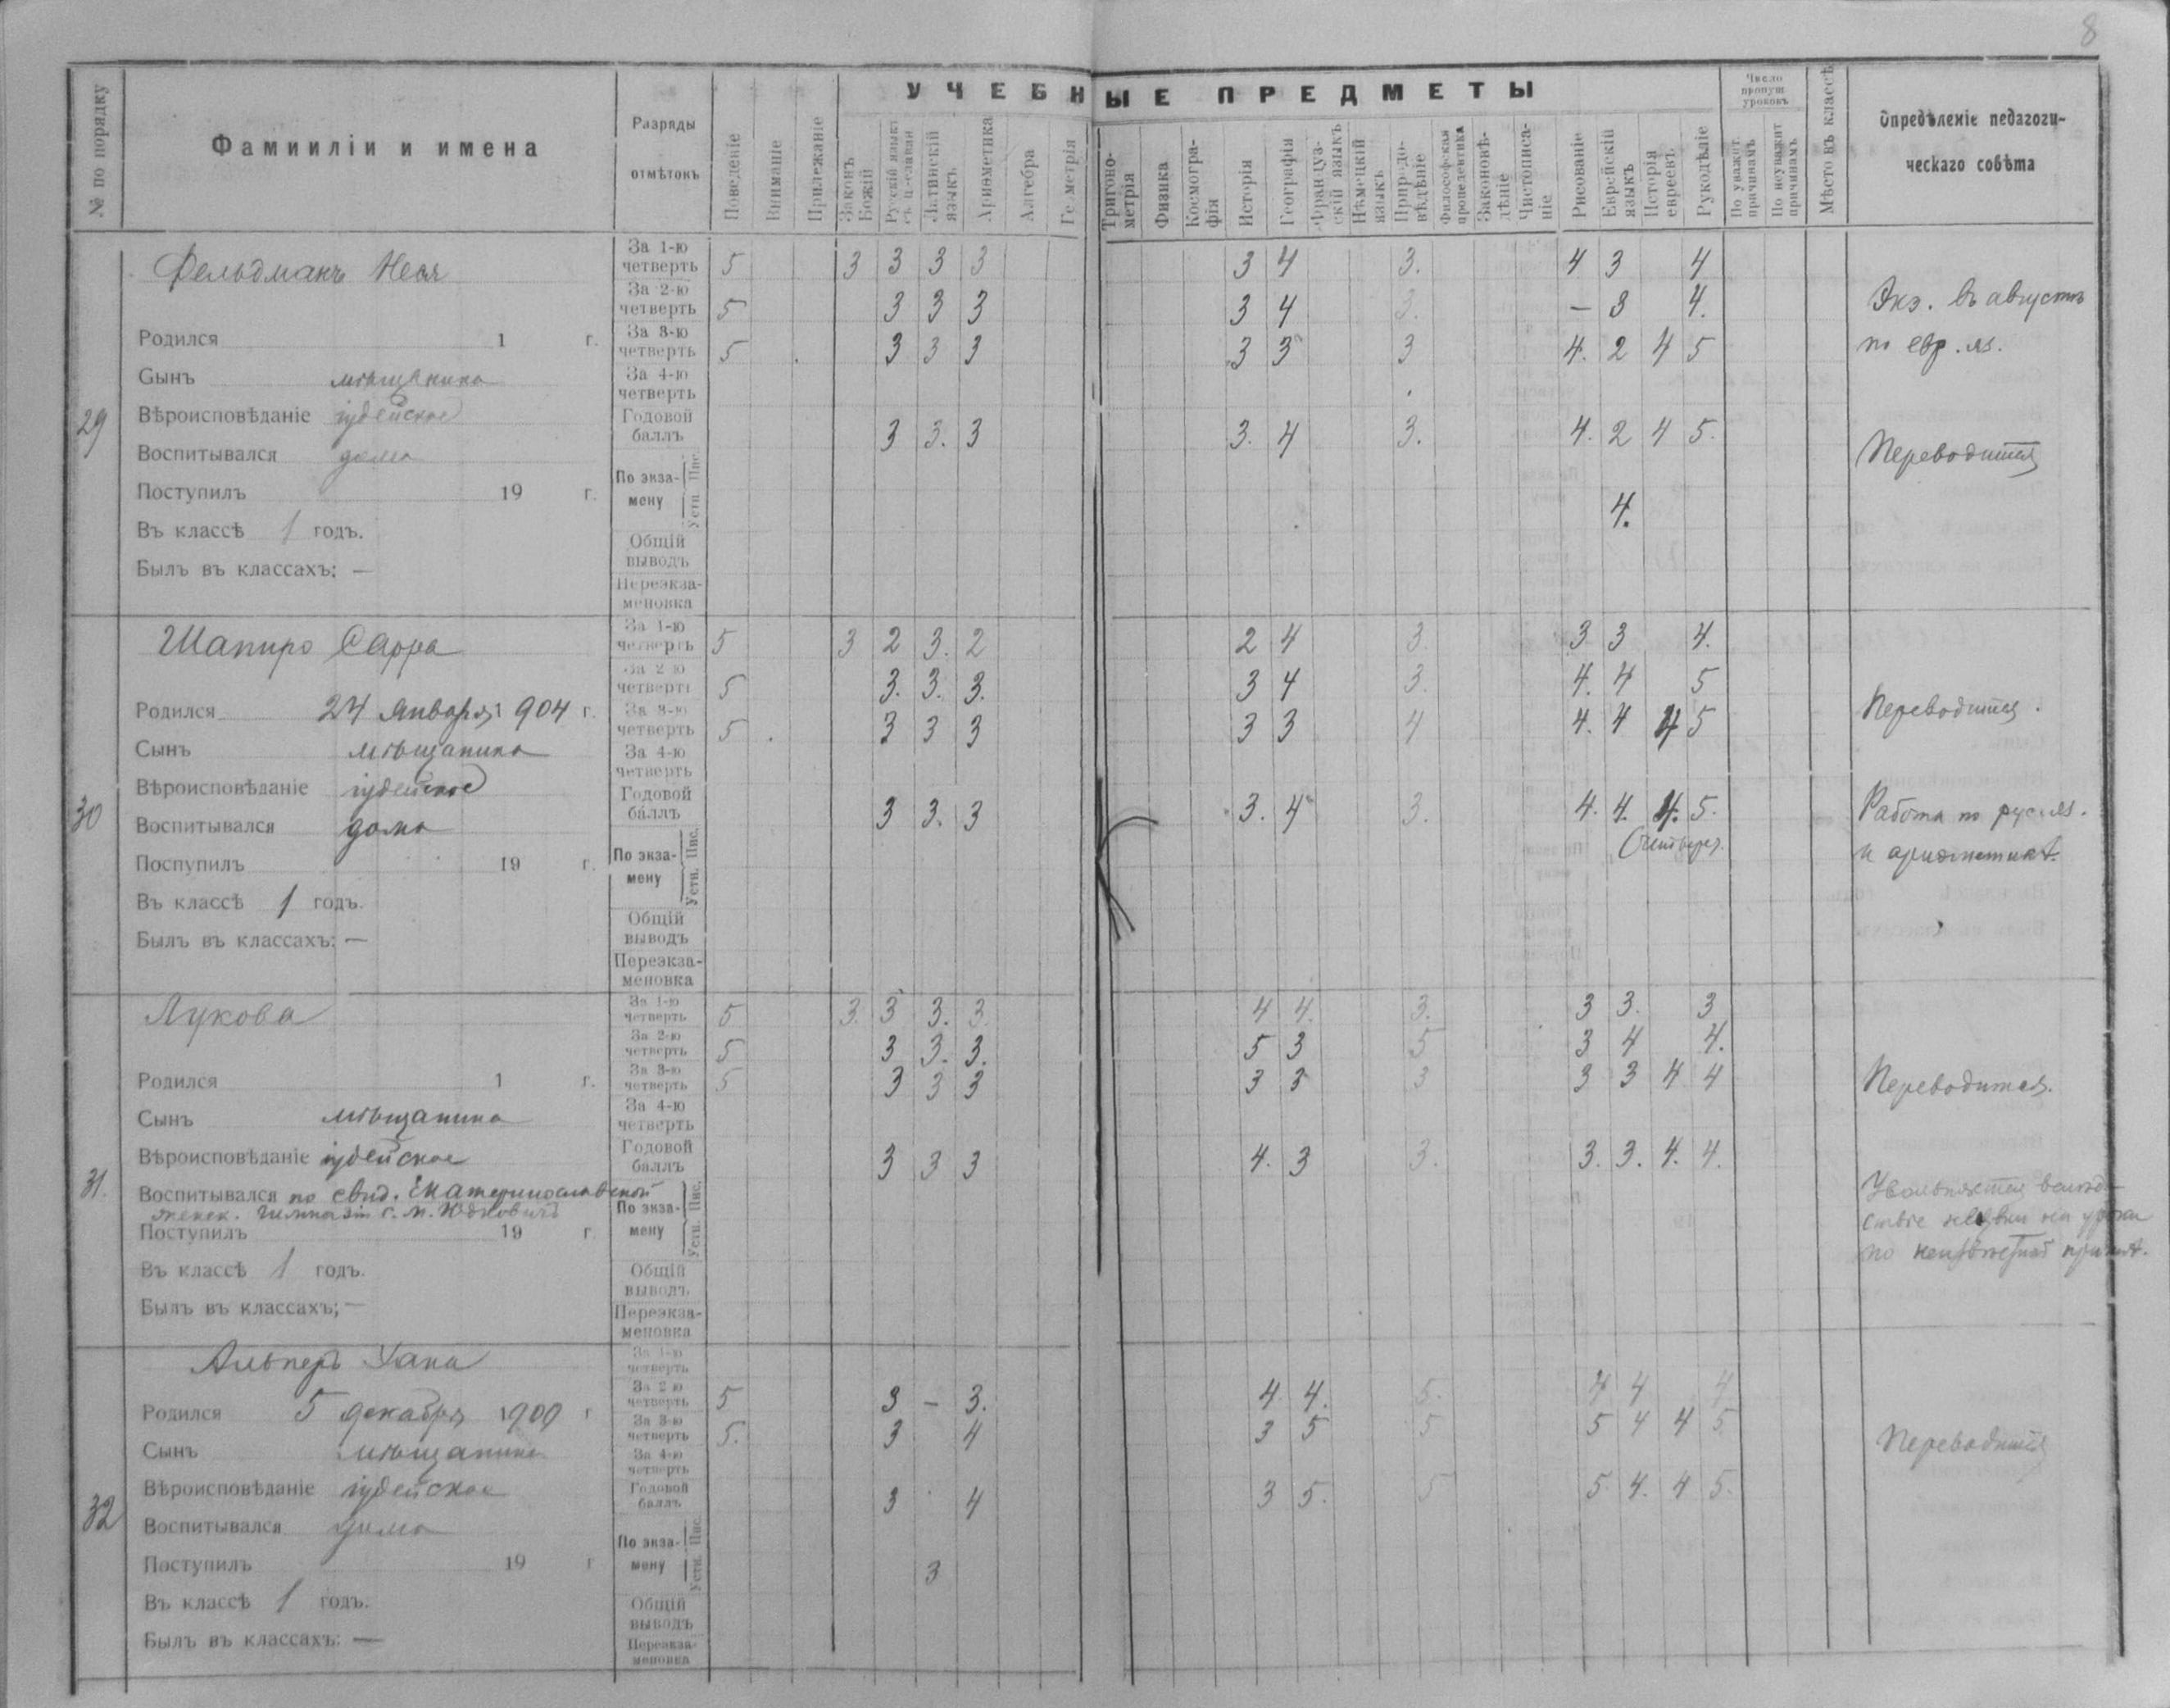 8
№ по порядку
Фамииліи и имена
Разряды
отмѣтокъ
УЧЕБНЫЕ ПРЕДМЕТЫ
Поведеніе
Вниманіе
Прилежаніе
Законъ Божій
Русскій языкъ
Латинскій языкъ
Ариөметика
Алгебра
Геометрія
Тригоно-метрія
Физика
Космогра-фія
Исторія
Географія
Француз-скій языкъ
Нѣмецкій языкъ
Природо-вѣдѣніе
Философская пропедевтика
Законовѣ-дѣніе
Чистописа-ніе
Рисованіе
Еврейскій языкъ
Исторія евреевъ
Рукодѣліе
Число пропущ. уроковъ
По уважит. причинамъ
По неуважит причинамъ
Мѣсто въ классѣ
Опредѣленіе педагоги-
ческаго совѣта
29
Фельдманъ Неся
Родился 1 г.
Сынъ мѣщанина
Вѣроисповѣданіе іудейское
Воспитывался дома
Поступилъ 19 г.
Въ классѣ 1 годъ.
Былъ въ классахъ: —
За 1-ю четверть 5 3 3 3 3 3 4 3. 4 3 4
За 2-ю четверть 5 3 3 3 3 4 3. — 3 4.
За 3-ю четверть 5 3 3 3 3 3 3 4. 2 4 5
За 4-ю четверть
Годовой баллъ 3 3. 3 3. 4 3. 4. 2 4 5.
По экза-мену Пис. Устн. 4.
Общій выводъ
Переэкза-меновка
Экз. въ августѣ
по евр. яз.
Переводится
30
Шапиро Сарра
Родился 24 января 1904 г.
Сынъ мѣщанина
Вѣроисповѣданіе іудейское
Воспитывался дома
Поспупилъ 19 г.
Въ классѣ 1 годъ.
Былъ въ классахъ: —
За 1-ю четверть 5 3 2 3. 2 2 4 3. 3 3 4.
За 2-ю четверть 5 3. 3. 3. 3 4 3. 4. 4 5
За 3-ю четверть 5 3 3 3 3 3 4 4. 4 4 5
За 4-ю четверть
Годовой баллъ 3 3. 3 3. 4 3. 4. 4. 4. 5.
По экза-мену Пис. Устн.
Общій выводъ
Переэкза-меновка
Переводится.
Работа по рус. яз.
и ариөметикѣ.
31.
Лукова
Родился 1 г.
Сынъ мѣщанина
Вѣроисповѣданіе іудейское
Воспитывался по свид. Екатеринославской
женск. гимназіи
Поступилъ 19 г.
Въ классѣ 1 годъ.
Былъ въ классахъ; —
За 1-ю четверть 5 3. 3 3. 3. 4 4. 3. 3 3. 3
За 2-ю четверть 5 3 3. 3. 5 3 5 3 4 4.
За 3-ю четверть 5 3 3 3 3 3 3 3 3 4 4
За 4-ю четверть
Годовой баллъ 3 3 3 4. 3 3. 3. 3. 4. 4.
По экза-мену Пис. Устн.
Общій выводъ
Переэкза-меновка
Переводится.
Увольняется вслѣд-
ствіе неявки на уроки
по неизвѣстной причинѣ.
32
Альперъ Хана
Родился 5 декабря 1900 г
Сынъ мѣщанина
Вѣроисповѣданіе іудейское
Воспитывался дома
Поступилъ 19 г
Въ классѣ 1 годъ.
Былъ въ классахъ: —
За 1-ю четверть
За 2-ю четверть 5 3 — 3. 4 4. 5. 4 4 4
За 3-ю четверть 5. 3 4 3 5 5 5 4 4 5
За 4-ю четверть
Годовой баллъ 3 4 3 5. 5 5 4. 4 5.
По экза-мену Пис. Устн. 3
Общій выводъ
Переэкза-меновка
Переводится